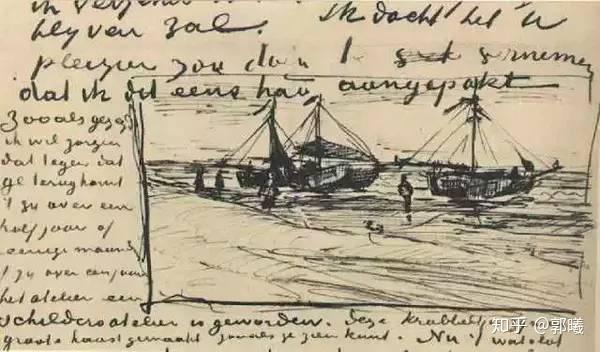 Ik dacht het U
blyven zal.
plezier zou doen te vernemen
dat ik dit eens had aangepakt
Zooals gezegd
ik wil zorgen
dat tegen dat
ge terugkomt
't zy over een
half jaar of
eenige maanden
't zy over een jaar
het atelier een
schildersatelier is geworden. Deze
groote haast gemaakt zooals je zien kunt. Nu
知乎 @郭曦